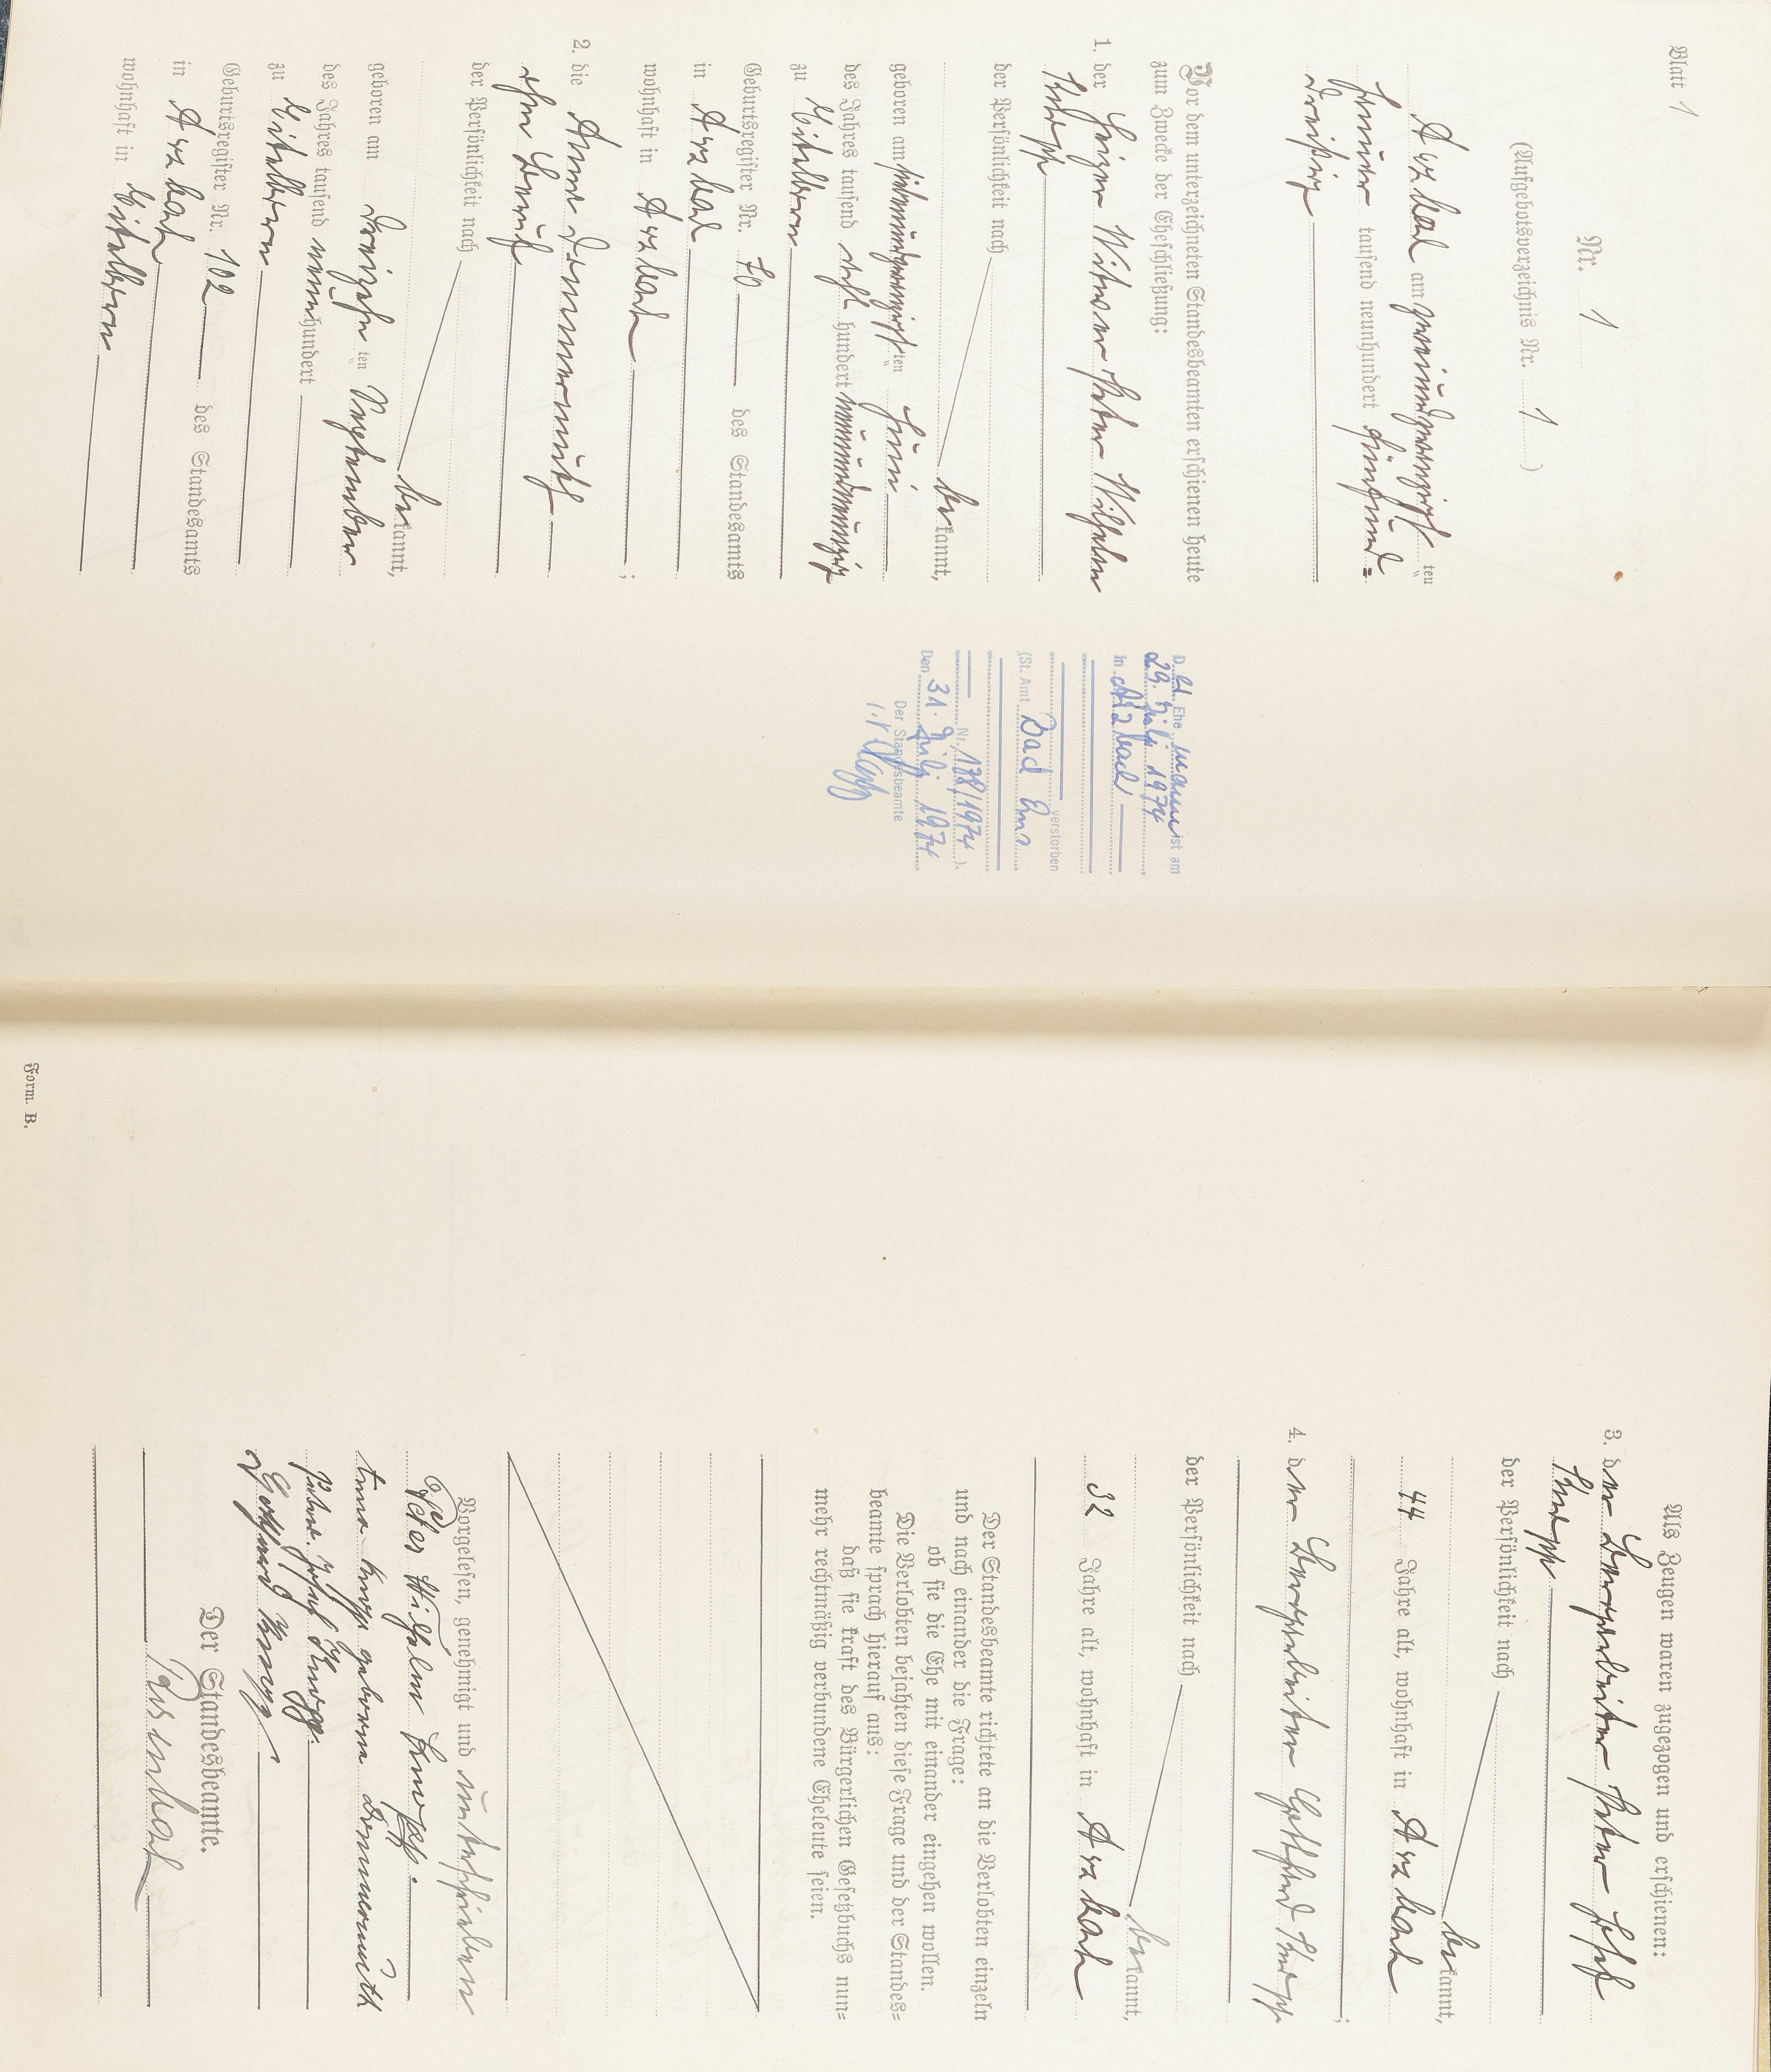 Blatt 1
Nr. 1
(Aufgebotsverzeichnis Nr. 1)
Arzbach am zweiundzwanzigsten
Januar tausend neunhundert fünfund=
dreißig
Vor dem unterzeichneten Standesbeamten erschienen heute
zum Zwecke der Eheschließung:
1. der Heizer Witwer Peter Wilhelm
Knopp
der Persönlichkeit nach
bekannt,
geboren am siebenundzwanzigsten Juni
des Jahres tausend acht hundert neunundneunzig
zu Eitelborn
Geburtsregister Nr. 70 des Standesamts
in Arzbach
wohnhaft in Arzbach ;
2. die Anna Demmermuth
ohne Beruf
der Persönlichkeit nach
bekannt,
geboren am dreizehnten September
des Jahres tausend neunhundert
zu Eitelborn
Geburtsregister Nr. 102 des Standesamts
in Arzbach
wohnhaft in Eitelborn
D. Ehemann ist am
29. Juli 1974
in Arzbach
verstorben
(St. Amt Bad Ems
Nr. 178/1974 ).
Den 31. Juli 1974
Der Standesbeamte
Als Zeugen waren zugezogen und erschienen:
3. der Bergarbeiter Peter Josef
Knopp
der Persönlichkeit nach
bekannt,
44 Jahre alt, wohnhaft in Arzbach ;
4. der Bergarbeiter Gotthard Knopp
der Persönlichkeit nach
bekannt,
32 Jahre alt, wohnhaft in Arzbach
Der Standesbeamte richtete an die Verlobten einzeln
und nach einander die Frage:
ob sie die Ehe mit einander eingehen wollen.
Die Verlobten bejahten diese Frage und der Standes=
beamte sprach hierauf aus:
daß sie kraft des Bürgerlichen Gesetzbuchs nun=
mehr rechtmäßig verbundene Eheleute seien.
Vorgelesen, genehmigt und unterschrieben
Peter Wilhelm Knopp.
Anna Knopp geborene Demmermuth
Peter Josef Knopp.
Gotthard Knopp
Der Standesbeamte.
Form. B.